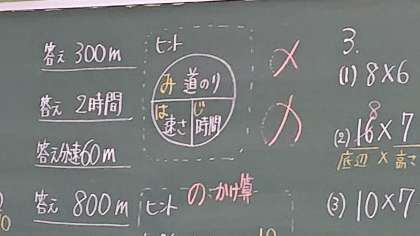 答え 300m
答え 2時間
答え分速60m
答え 800m
ヒント
み 道のり
は 速さ
じ 時間
ヒント
の かけ算
3.
(1) 8×6
8
(2) 16×7
底辺×高さ
(3) 10×7